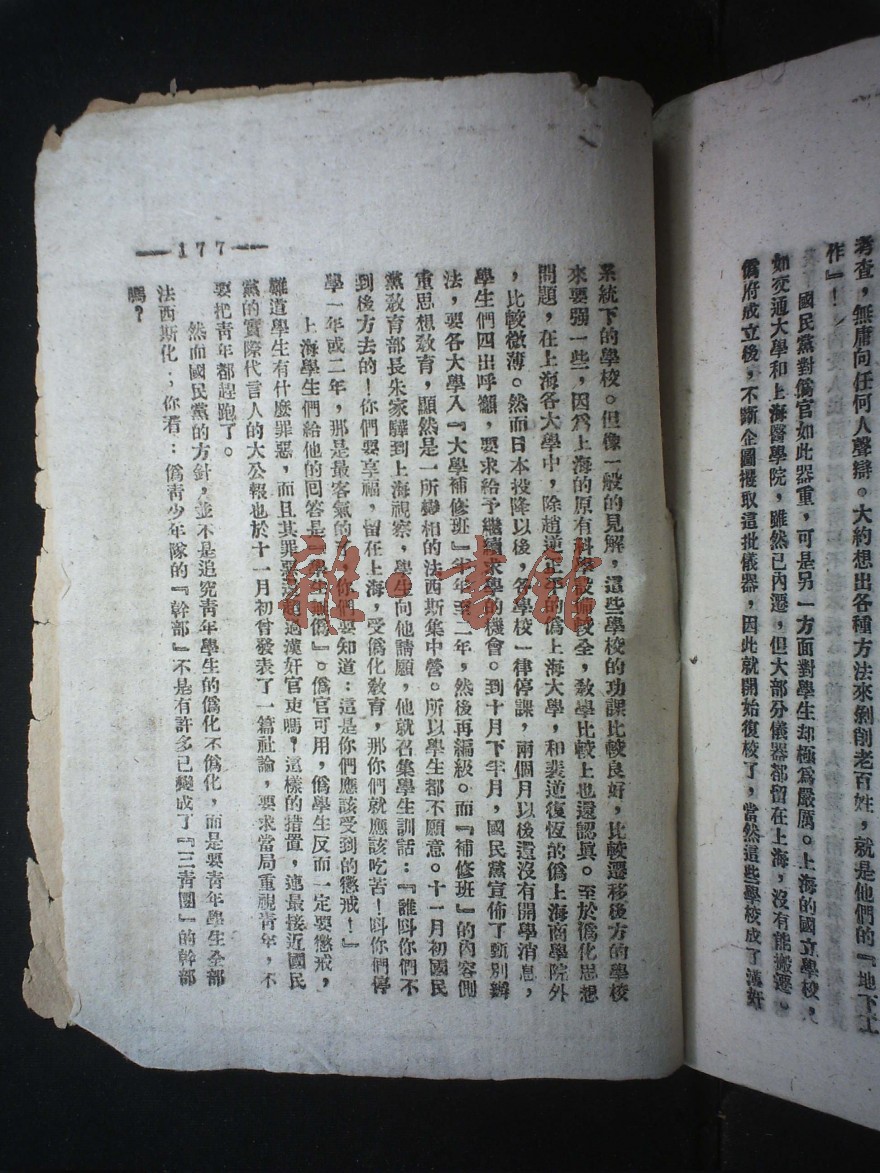 考查，無庸向任何人聲辯。大約想出各種方法來剝削老百姓，就是他們的『地下工
作』！
國民黨對僞官如此器重，可是另一方面對學生却極爲嚴厲。上海的國立學校，
如交通大學和上海醫學院，雖然已內遷，但大部分儀器都留在上海，沒有能搬遷。
僞府成立後，不斷企圖攫取這批儀器，因此就開始復校了，當然這些學校成了漢奸
系統下的學校。但像一般的見解，這些學校的功課比較良好，比較遷移後方的學校
來要强一些，因爲上海的原有科學設備較全，敎學比較上也還認眞。至於僞化思想
問題，在上海各大學中，除趙逆正平的僞上海大學，和裴逆復恆的僞上海商學院外
，比較微薄。然而日本投降以後，各學校一律停課，兩個月以後還沒有開學消息，
學生們四出呼籲，要求給予繼續求學的機會。到十月下半月，國民黨宣佈了甄別辦
法，要各大學入『大學補修班』半年至二年，然後再編級。而『補修班』的內容側
重思想敎育，顯然是一所變相的法西斯集中營。所以學生都不願意。十一月初國民
黨敎育部長朱家驊到上海視察，學生向他請願，他就召集學生訓話：『誰叫你們不
到後方去的！你們要享福，留在上海，受僞化敎育，那你們就應該吃苦！叫你們停
學一年或二年，那是最客氣的了，你們要知道：這是你們應該受到的懲戒！』
上海學生們給他的回答是『學生何僞』。僞官可用，僞學生反而一定要懲戒，
難道學生有什麼罪惡，而且其罪惡還超過漢奸官吏嗎？這樣的措置，連最接近國民
黨的實際代言人的大公報也於十一月初曾發表了一篇社論，要求當局重視青年，不
要把青年都趕跑了。
然而國民黨的方針，並不是追究青年學生的僞化不僞化，而是要青年學生全部
法西斯化：你看：僞青少年隊的『幹部』不是有許多已變成了『三青團』的幹部
嗎？
—177—
雜·書館